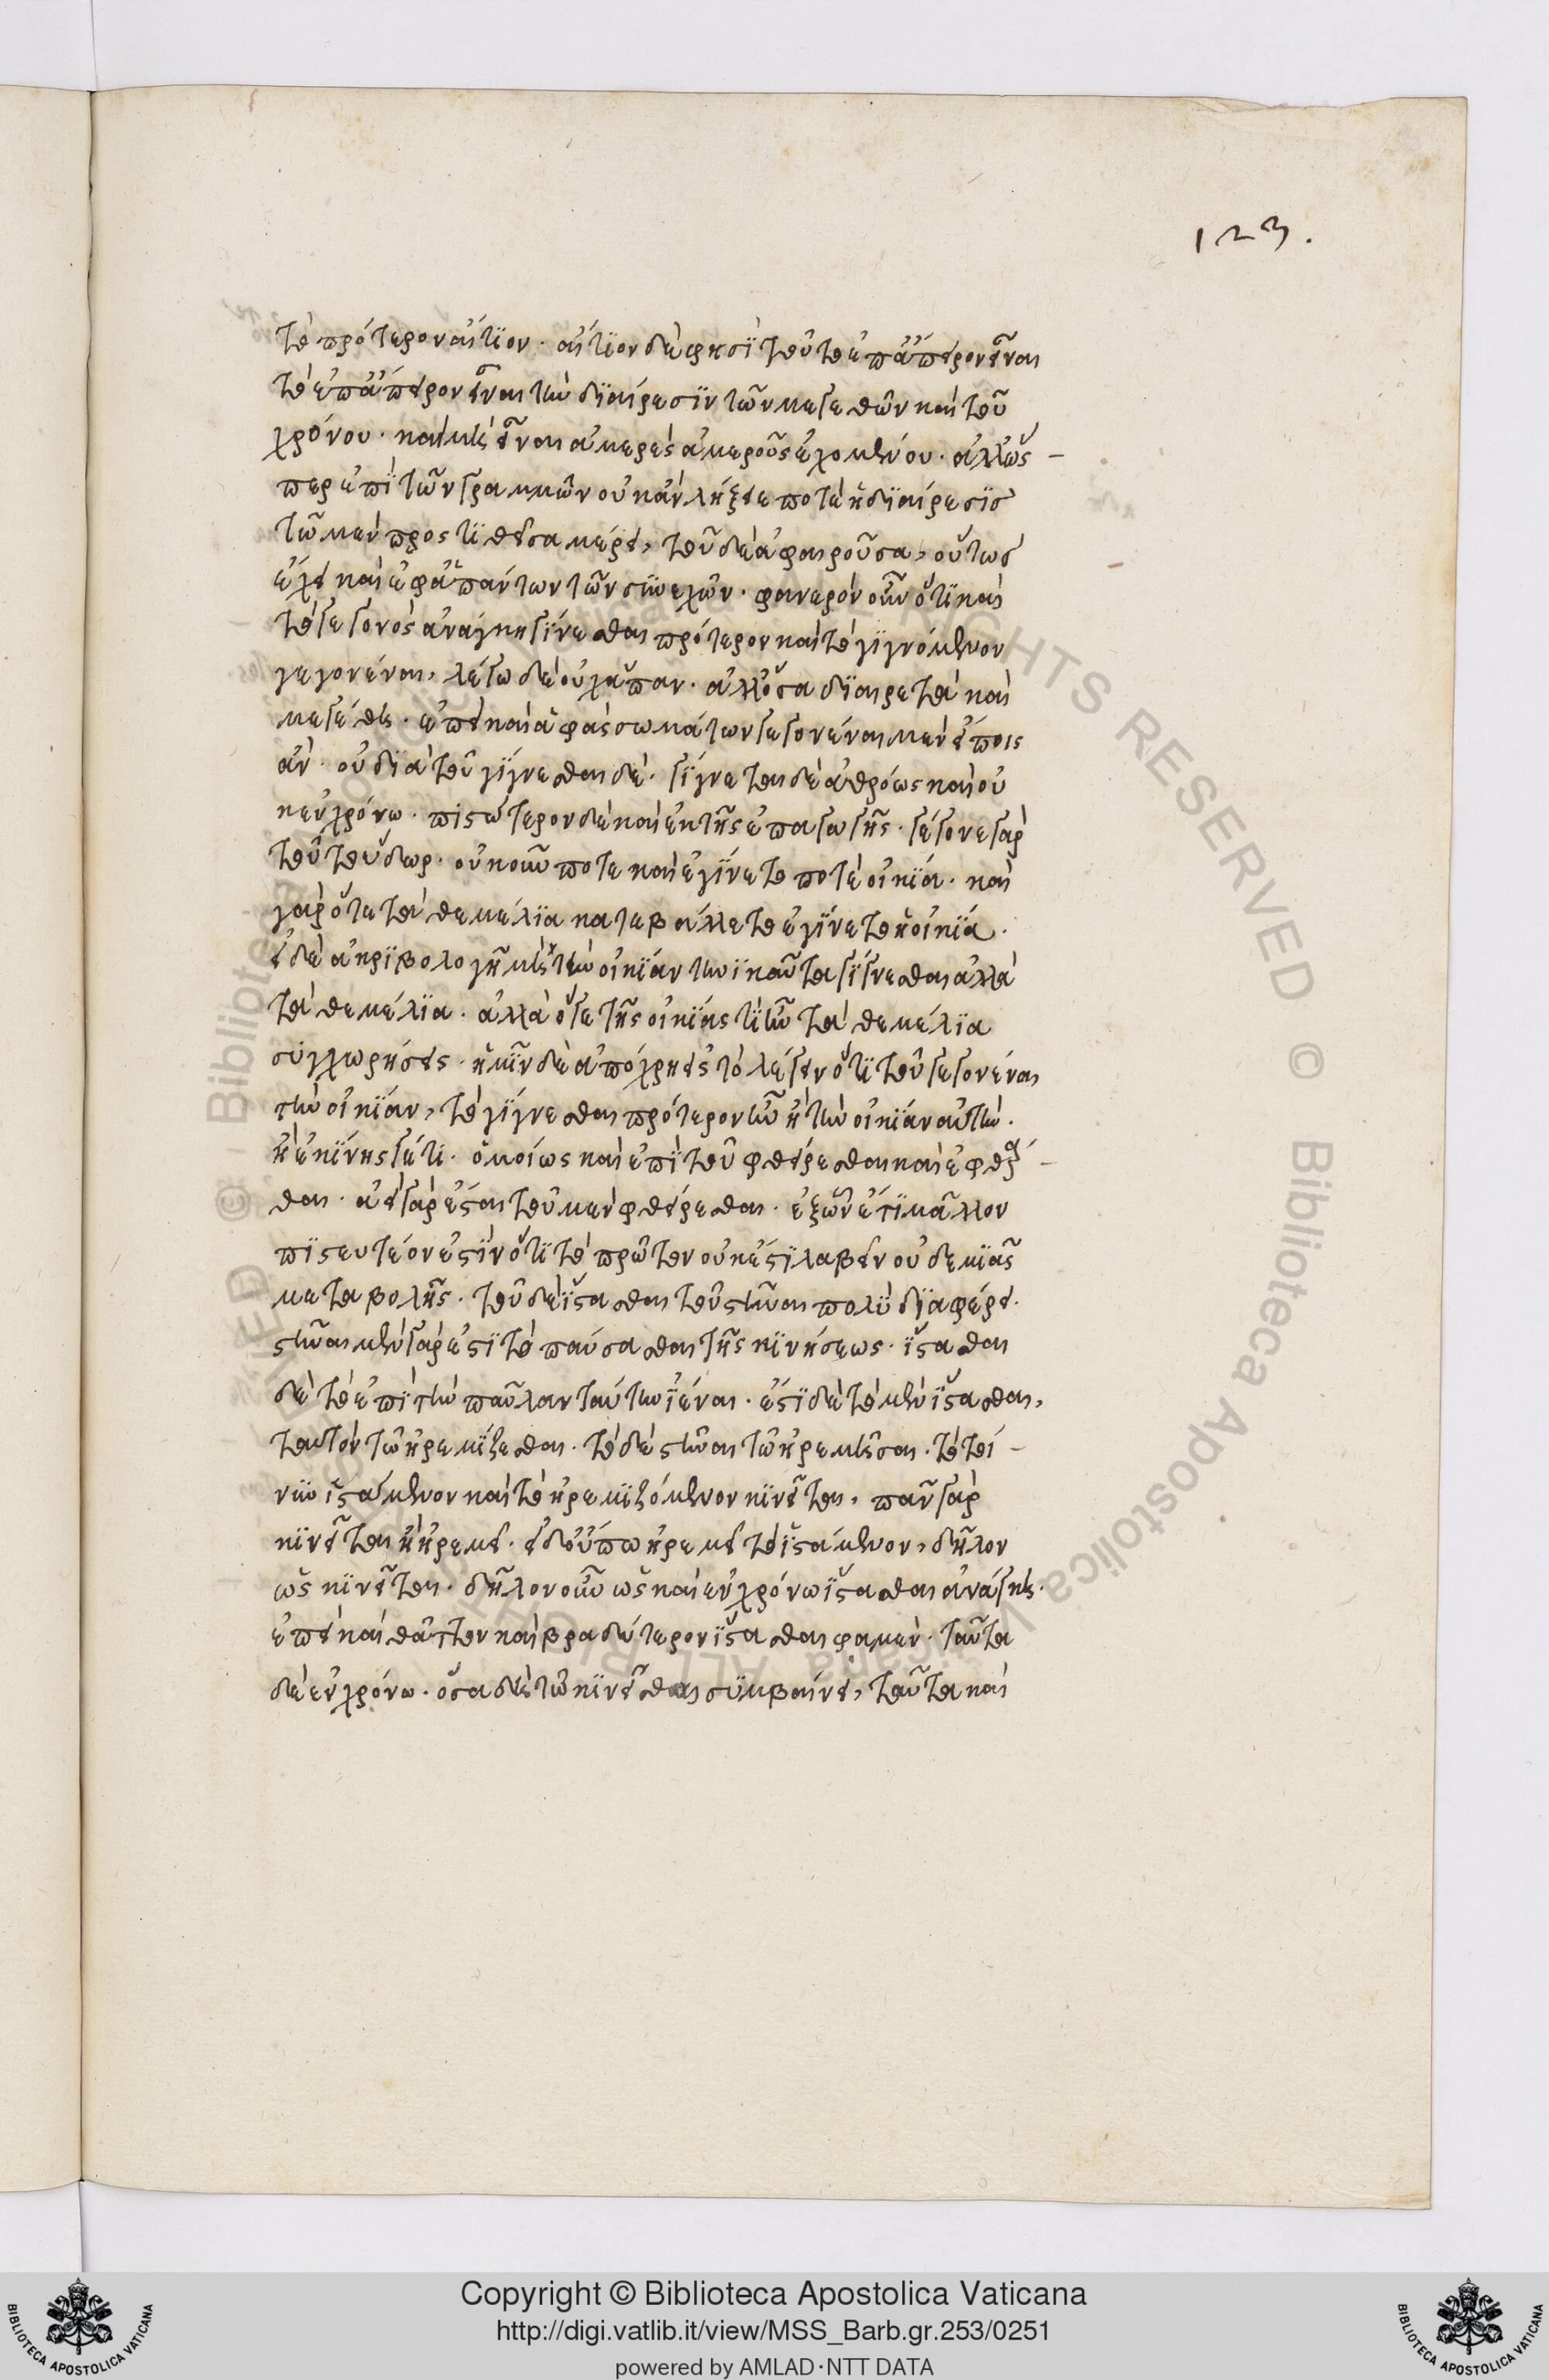 123.
τὸ πρότερον αἴτιον. αἴτιον δέ φησὶ τοῦ τὸ ἐπ' ἄπειρον εἶναι
τὸ ἐπ' ἄπειρον εἶναι τὴν διαίρεσιν τῶν μεγεθῶν καὶ τοῦ
χρόνου. καὶ μὴ εἶναι ἀμερὲς ἀμεροῦς ἐχομένου. ἀλλ' ὥς-
περ ἐπὶ τῶν γραμμῶν οὐκ ἂν λήξει ποτὲ ἡ διαίρεσις
τῷ μὲν προστιθεῖσα μέρει, τοῦ δὲ ἀφαιροῦσα, οὕτως
ἔχει καὶ ἐφ' ἁπάντων τῶν συνεχῶν. φανερὸν οὖν ὅτι καὶ
τὸ γεγονὸς ἀνάγκη γίνεσθαι πρότερον καὶ τὸ γιγνόμενον
γεγονέναι, λέγω δὲ οὐχ ἅπαν. ἀλλ' ὅσα διαιρετὰ καὶ
μεγέθη. ἐπεὶ καὶ ἁφὰς σωμάτων γεγονέναι μὲν εἴποις
ἄν. οὐ διὰ τοῦ γίγνεσθαι δέ. γίγνεται δὲ ἀθρόως καὶ οὐ
κ ἐν χρόνω. πιστώτερον δὲ καὶ ἐκ τῆς ἐπαγωγῆς. γέγονε γὰρ
τοῦτο ὕδωρ. οὐκοῦν ποτε καὶ ἐγίνετο ποτὲ οἰκία. καὶ
γὰρ ὅτε τὰ θεμέλια κατεβάλλετο ἐγίνετο ἡ οἰκία.
εἰ δὲ ἀκριβολογῆ μὴ τὴν οἰκίαν τηνικαῦτα γίγνεσθαι ἀλλὰ
τὰ θεμέλια. ἀλλὰ ὅγε τῆς οἰκίας τι ἦν τὰ θεμέλια
συγχωρήσεις. ἡμῖν δὲ ἀπόχρη εἰς τὸ λέγειν ὅτι τοῦ γεγονέναι
τὴν οἰκίαν, τὸ γίγνεσθαι πρότερον ἦν ἢ τὴν οἰκίαν αὐτὴν.
ἢ ἐκείνης γέ τι. ὁμοίως καὶ ἐπὶ τοῦ φθείρεσθαι καὶ ἐφθάρ-
θαι. ἀεὶ γὰρ ἔσται τοῦ μὲν φθείρεσθαι. ἐξ ὧν ἔτι μᾶλλον
πιστευτέον ἐστὶν ὅτι τὸ πρῶτον οὐκ ἔστι λαβεῖν οὐδεμιᾶς
μεταβολῆς. τοῦ δὲ ἵστασθαι τοῦ στῆναι πολὺ διαφέρει.
στῆναι μὲν γὰρ ἐστὶ τὸ παύσασθαι τῆς κινήσεως. ἵστασθαι
δὲ τὸ ἐπὶ τὴν παῦλαν ταύτην ἰέναι. ἔστι δὲ τὸ μὲν ἵστασθαι,
ταυτὸν τῶ ἠρεμίζεσθαι. τὸ δὲ στῆναι τῶ ἠρεμῆσαι. τὸ τοί-
νυν ἱστάμενον καὶ τὸ ἠρεμιζόμενον κινεῖται, πᾶν γὰρ
κινεῖται ἢ ἠρεμεῖ. εἰ δ' οὔπω ἠρεμεῖ τὸ ἱστάμενον, δῆλον
ὡς κινεῖται. δῆλον οὖν ὡς καὶ ἐν χρόνω ἵστασθαι ἀνάγκη.
ἐπεὶ καὶ θᾶττον καὶ βραδύτερον ἵστασθαι φαμὲν. ταῦτα
δὲ ἐν χρόνω. ὅσα δὲ τῶ κινεῖσθαι συμβαίνει, ταῦτα καὶ
© Biblioteca Apostolica Vaticana ALL RIGHTS RESERVED
Copyright © Biblioteca Apostolica Vaticana
http://digi.vatlib.it/view/MSS_Barb.gr.253/0251
powered by AMLAD·NTT DATA
BIBLIOTECA APOSTOLICA VATICANA
BIBLIOTECA APOSTOLICA VATICANA